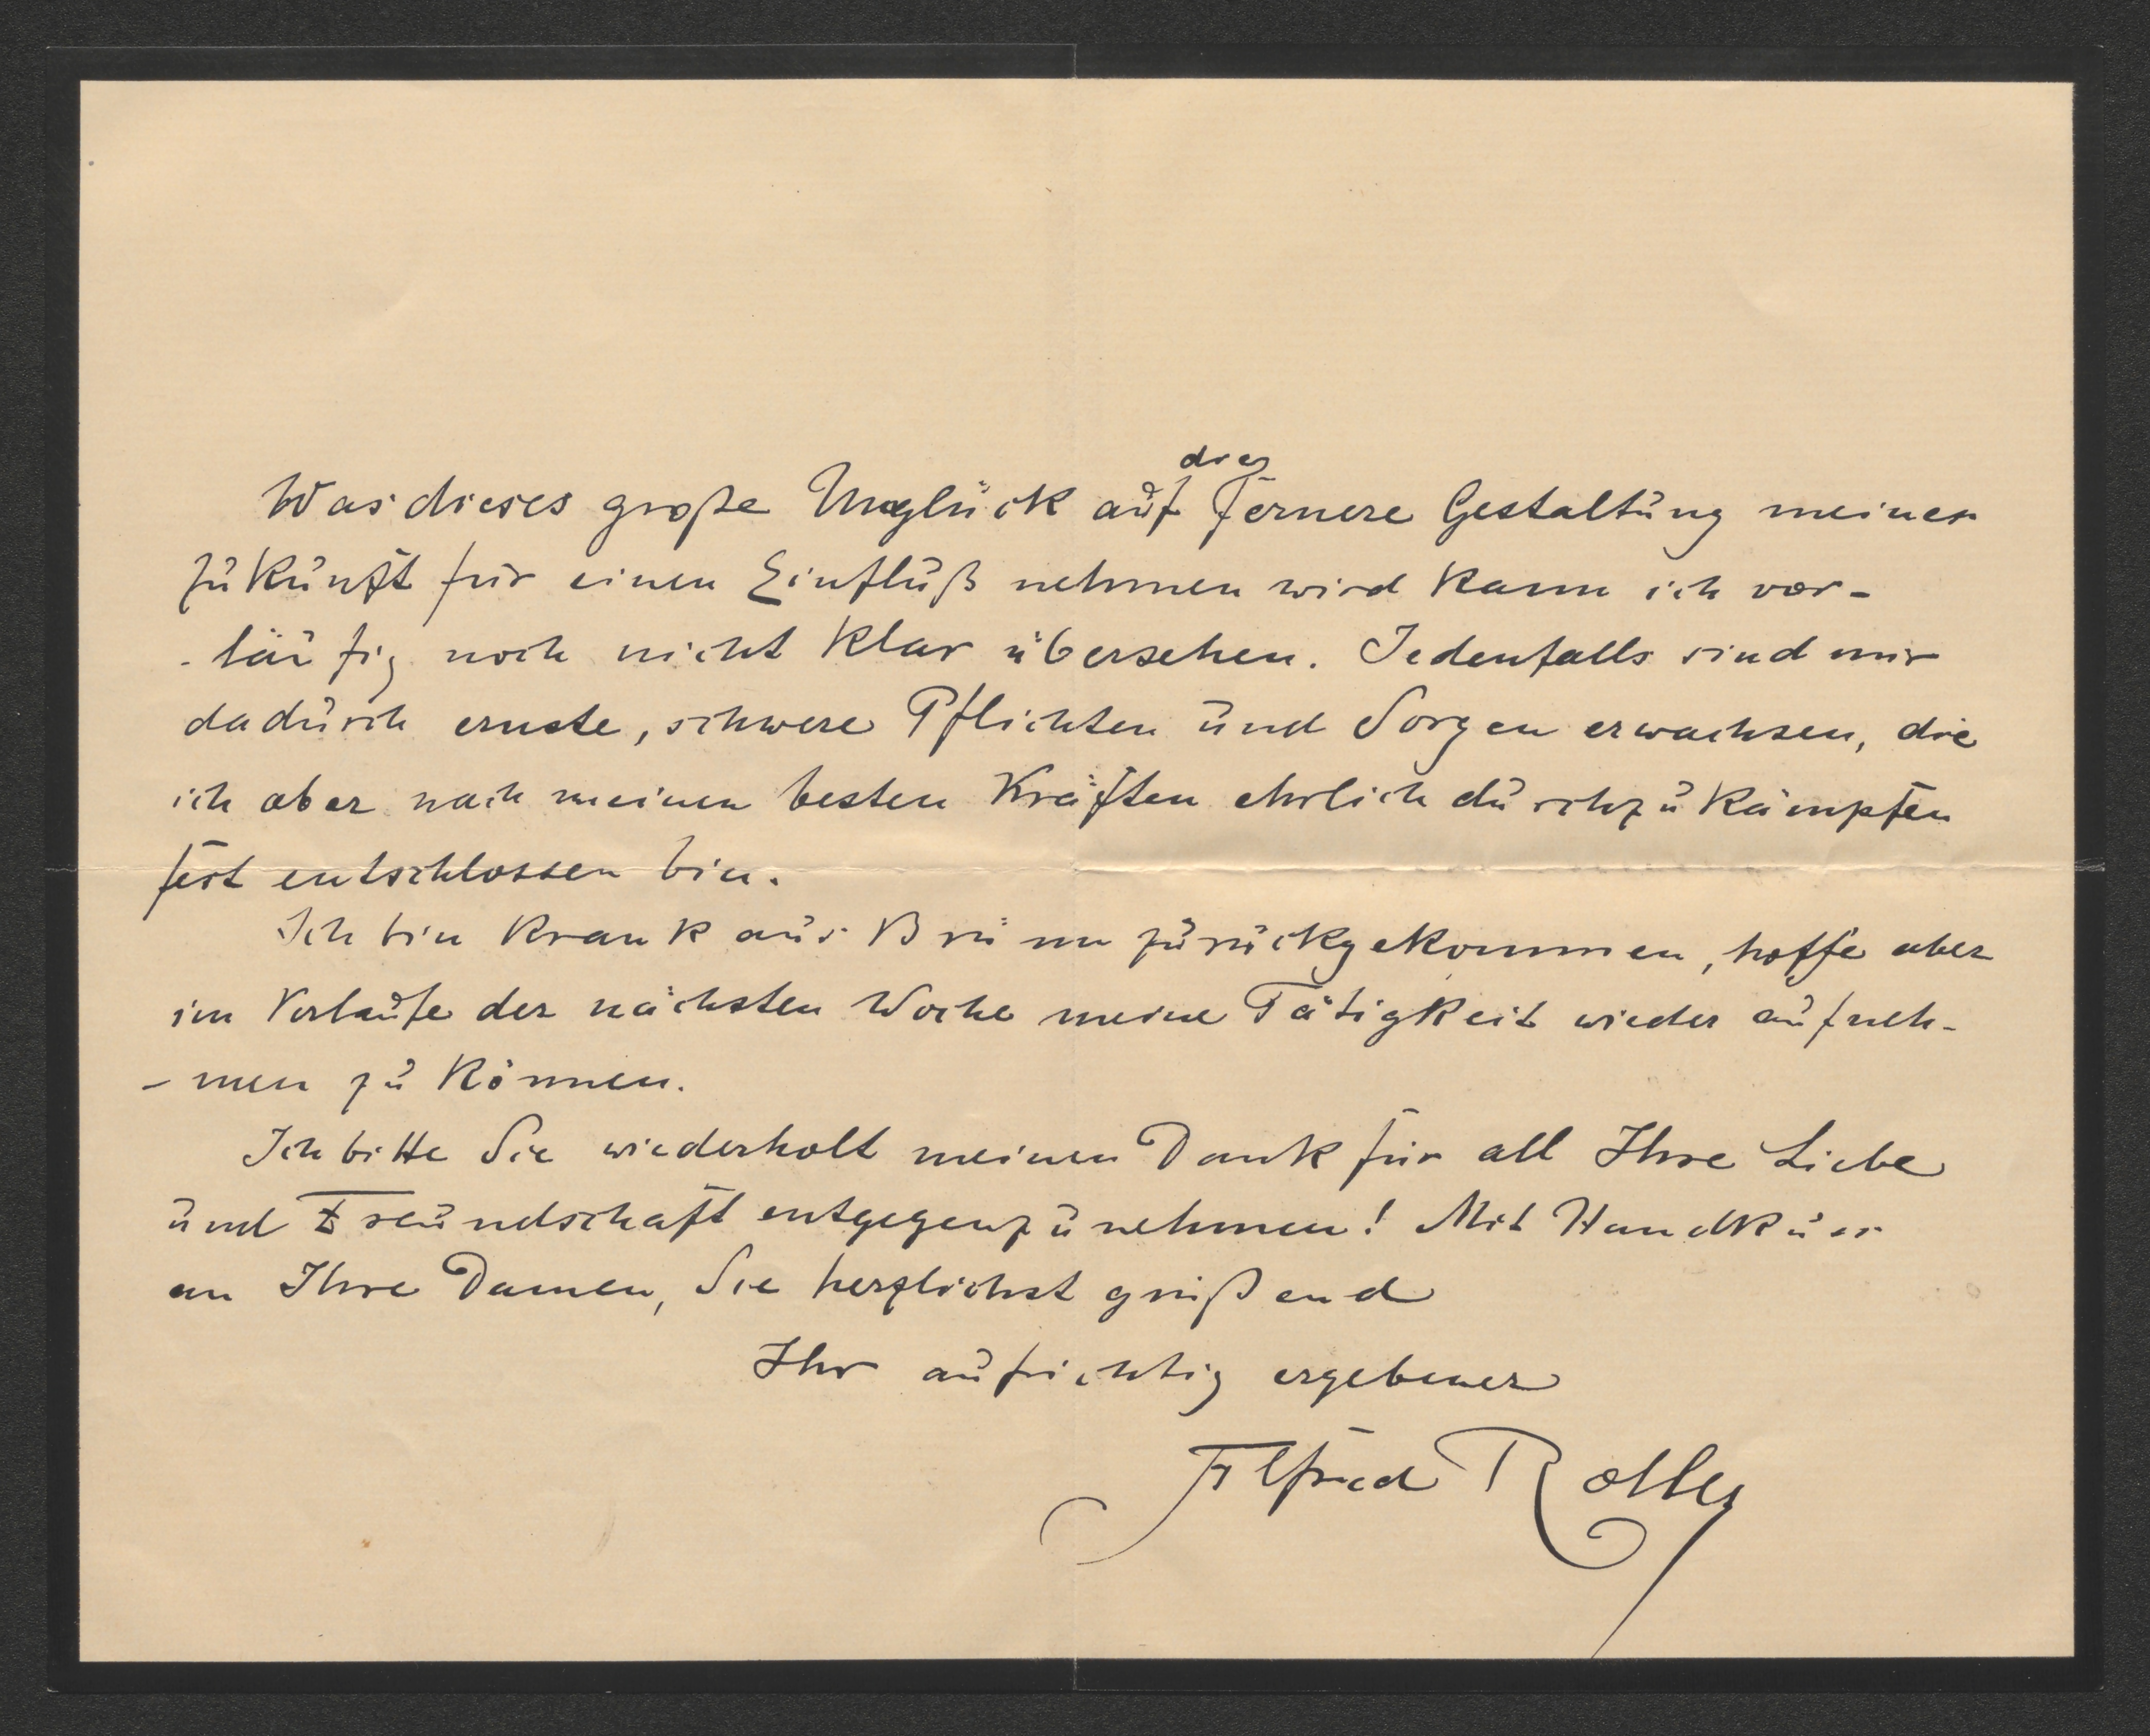 die
Was dieses große Unglück auf fernere Gestaltung meiner
Zukunft für einen Einfluß nehmen wird kann ich vor-
-läufig noch nicht klar übersehen. Jedenfalls sind mir
dadurch ernste, schwere Pflichten und Sorgen erwachsen, die
ich aber nach meinen besten Kräften ehrlich durchzukämpfen
fest entschlossen bin.
Ich bin krank aus Brünn zurückgekommen, hoffe aber
im Verlaufe der nächsten Woche meine Tätigkeit wieder aufneh-
-men zu können.
Ich bitte Sie wiederholt meinen Dank für all Ihre Liebe
und Freundschaft entgegenzunehmen! Mit Handkuss
an Ihre Damen, Sie herzlichst grüßend
Ihr aufrichtig ergebener
Alfred Roller